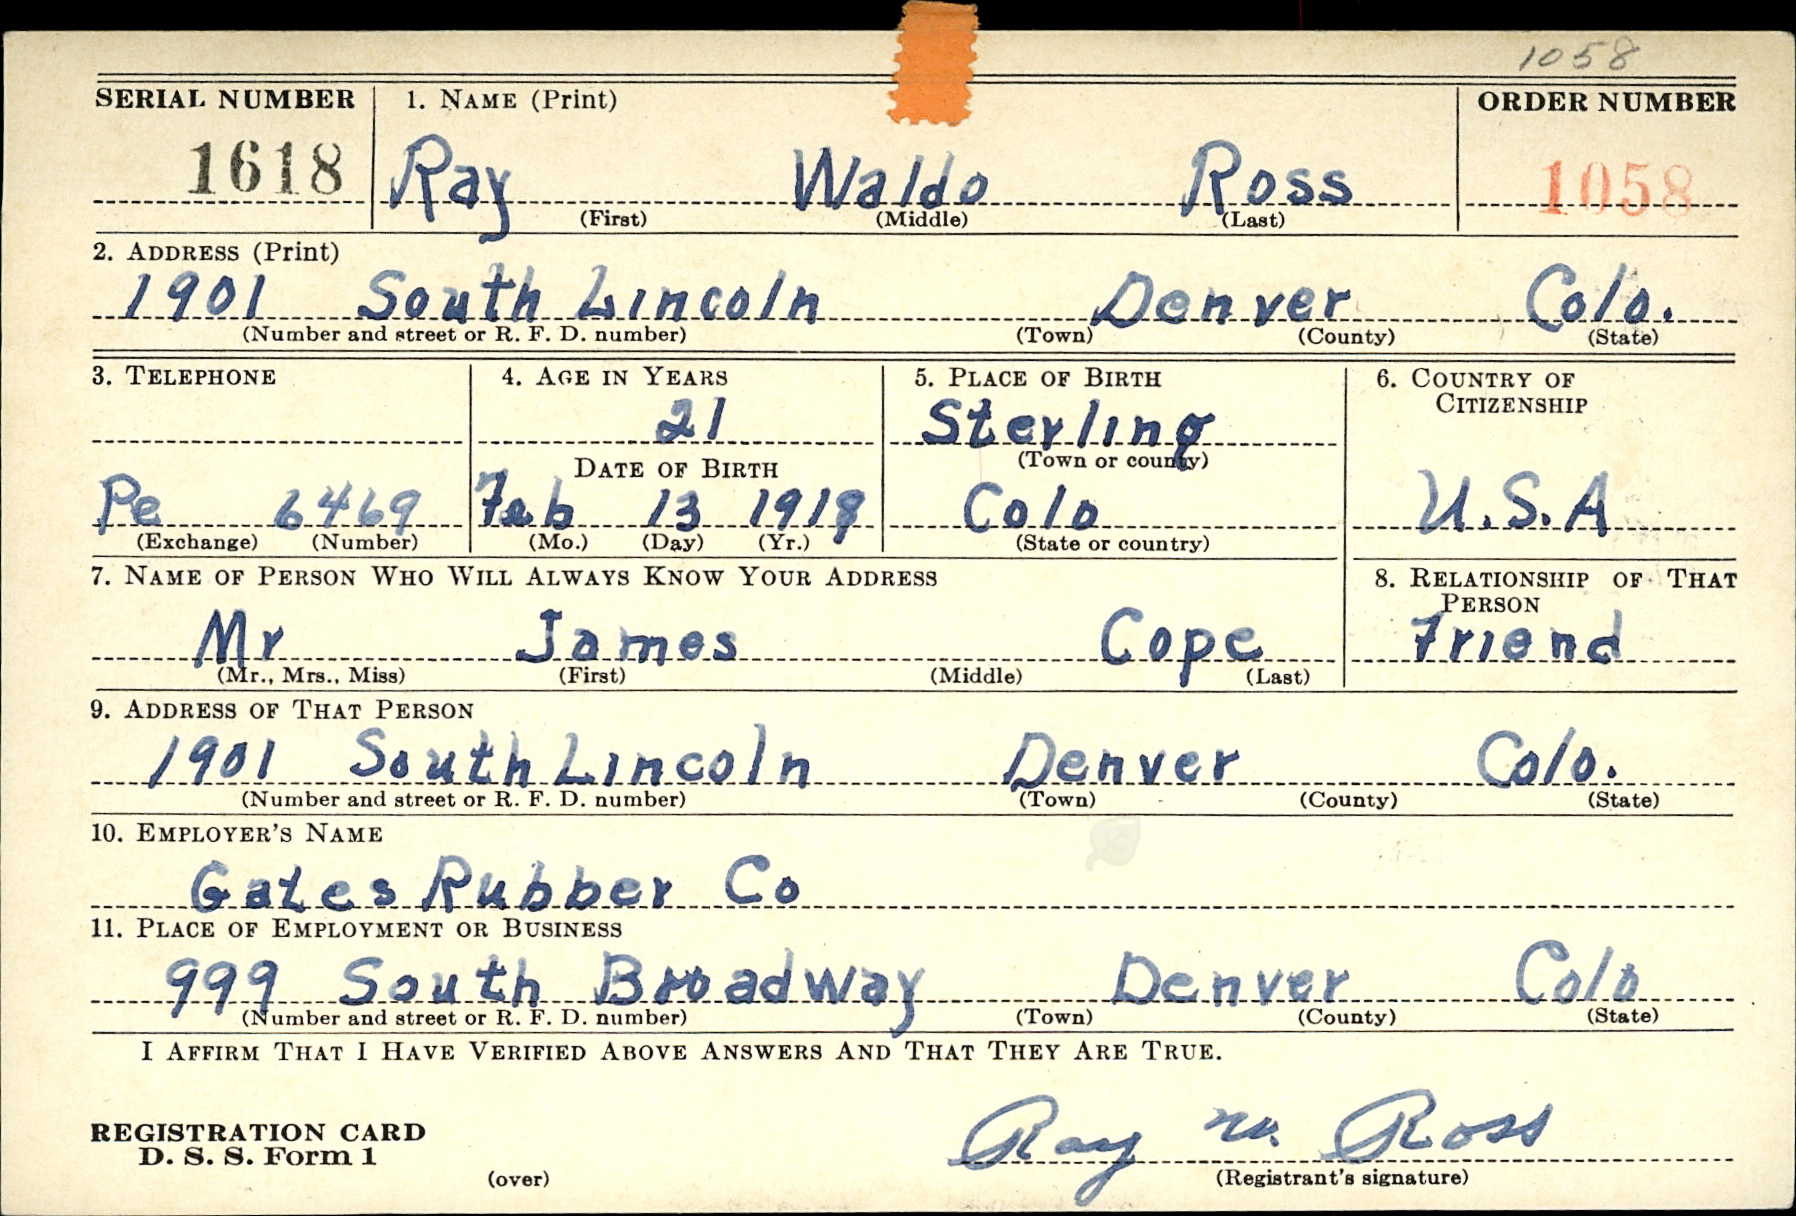 1058
SERIAL NUMBER 1. NAME (Print) ORDER NUMBER
1618 Ray Waldo Ross 1058
(First) (Middle) (Last)
2. ADDRESS (Print)
1901 South Lincoln Denver Colo.
(Number and street or R. F. D. number) (Town) (County) (State)
3. TELEPHONE 4. AGE IN YEARS 5. PLACE OF BIRTH 6. COUNTRY OF CITIZENSHIP
21 Sterling
DATE OF BIRTH (Town or county)
Pe 6469 Feb 13 1919 Colo U.S.A
(Exchange) (Number) (Mo.) (Day) (Yr.) (State or country)
7. NAME OF PERSON WHO WILL ALWAYS KNOW YOUR ADDRESS 8. RELATIONSHIP OF THAT PERSON
Mr James Cope Friend
(Mr., Mrs., Miss) (First) (Middle) (Last)
9. ADDRESS OF THAT PERSON
1901 South Lincoln Denver Colo.
(Number and street or R. F. D. number) (Town) (County) (State)
10. EMPLOYER'S NAME
Gates Rubber Co
11. PLACE OF EMPLOYMENT OR BUSINESS
999 South Broadway Denver Colo
(Number and street or R. F. D. number) (Town) (County) (State)
I AFFIRM THAT I HAVE VERIFIED ABOVE ANSWERS AND THAT THEY ARE TRUE.
REGISTRATION CARD
D. S. S. Form 1 Ray W. Ross
(over) (Registrant's signature)